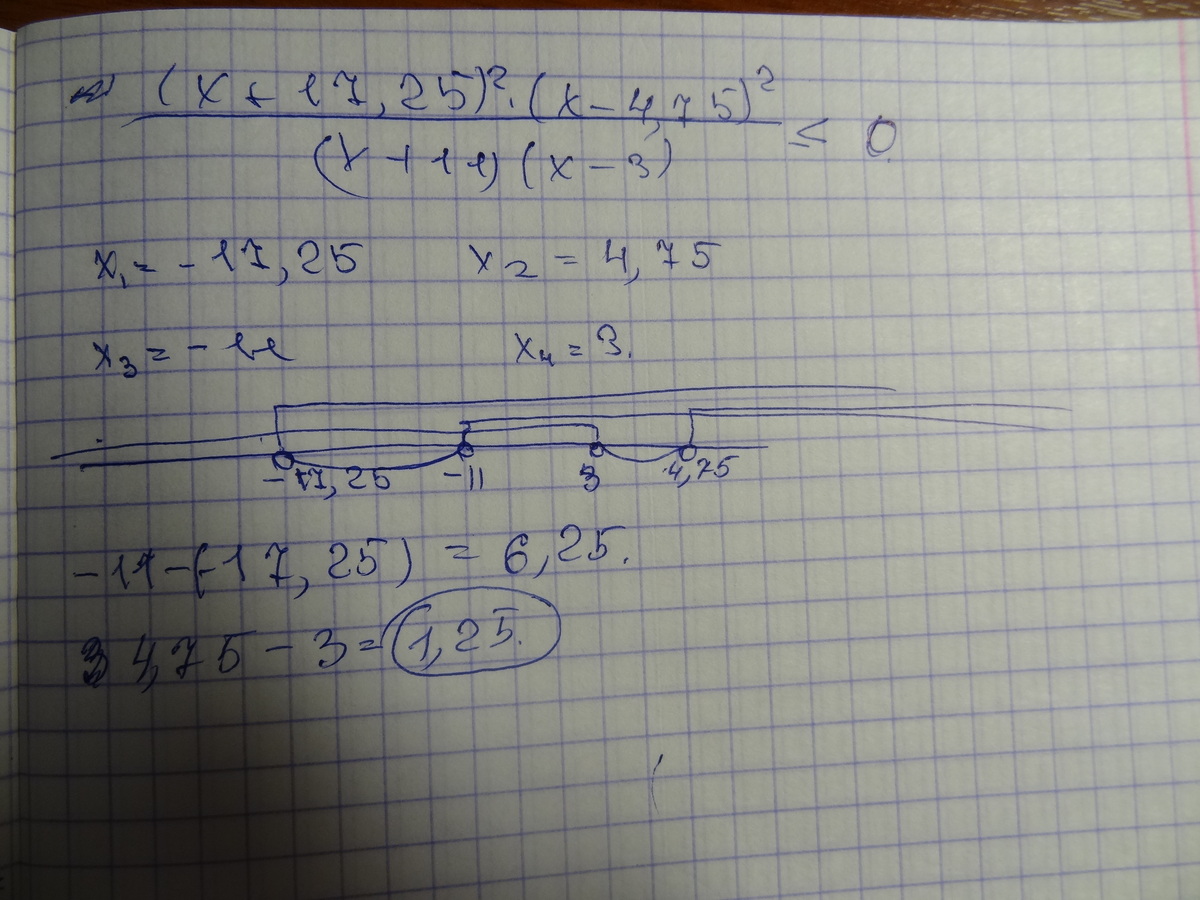 (x + 17,25)². (x - 4,75)²
≤ 0
(x + 11) (x - 3)
x₁ = - 17,25 x₂ = 4,75
x₃ = - 11 x₄ = 3.
-17,25 -11 3 4,75
-11-(-17,25) = 6,25.
4,75 - 3 = 1,25.